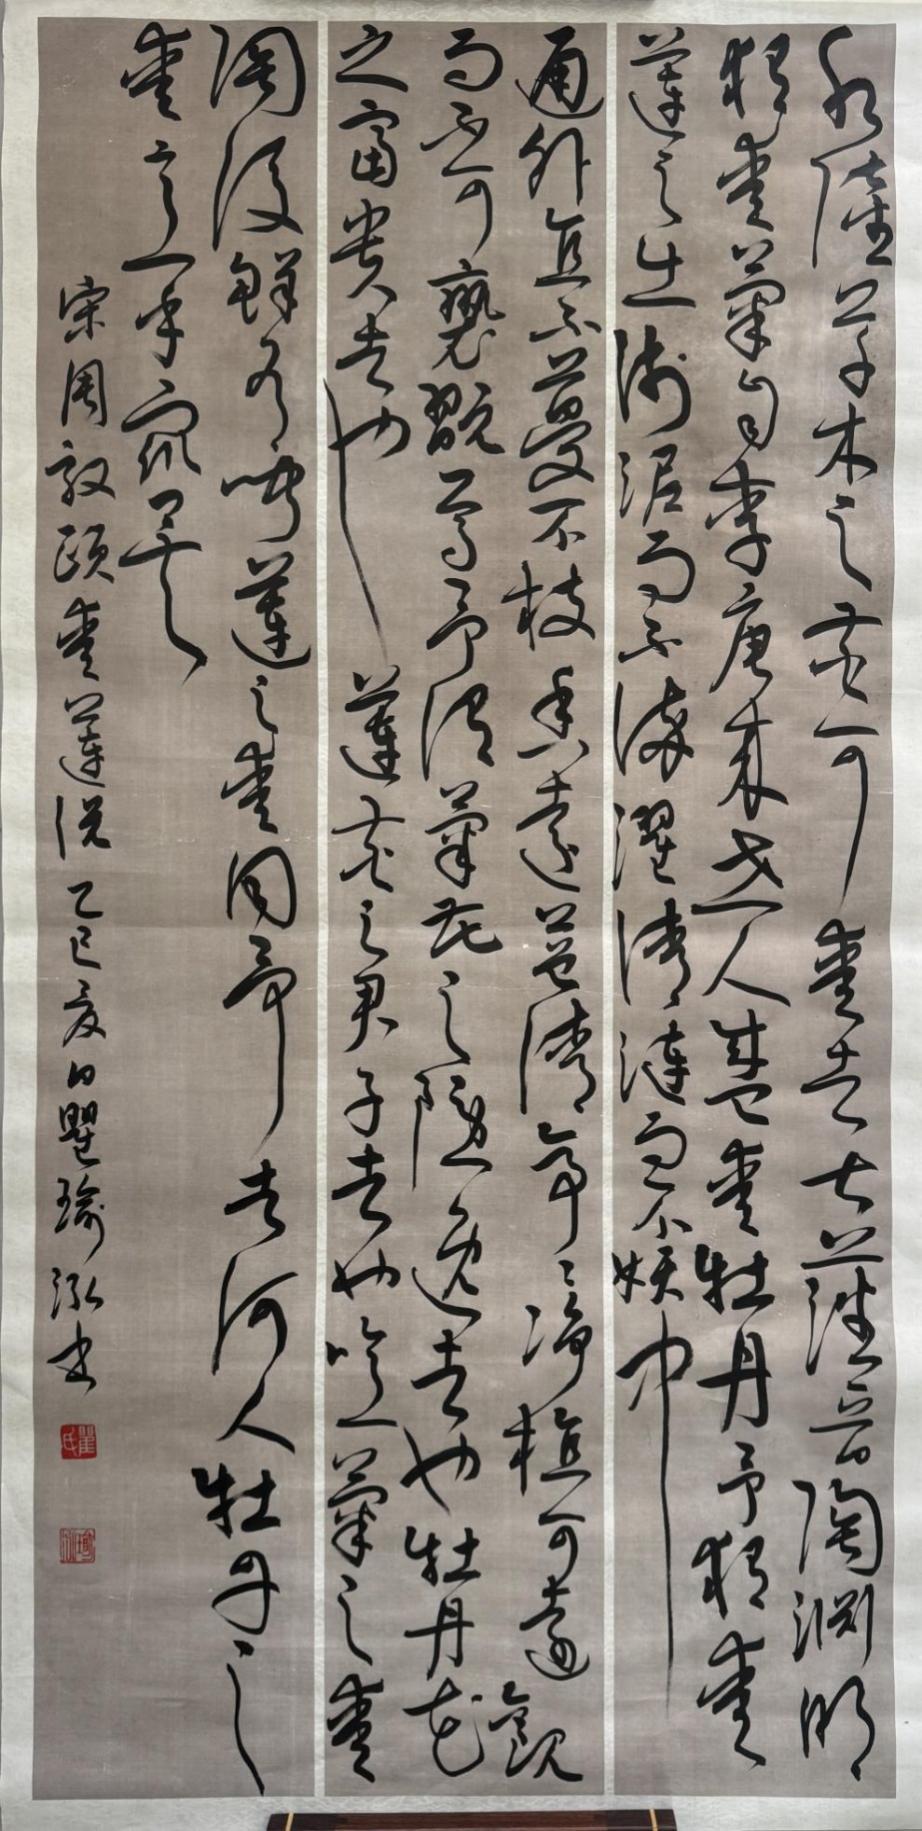 水陸草木之花可愛者甚蕃晋陶渊明
獨愛菊自李唐来世人甚愛牡丹予獨愛
蓮之出淤泥而不染濯清漣而不妖中
通外直不蔓不枝香遠益清亭亭净植可遠觀
而不可褻翫焉予謂菊花之隐逸者也牡丹花
之富貴者也蓮花之君子者也噫菊之愛
陶後鲜有聞蓮之愛同予者何人牡丹之
愛宜乎衆矣
宋周敦頤愛蓮説 乙巳夏日瞿瑜泓书